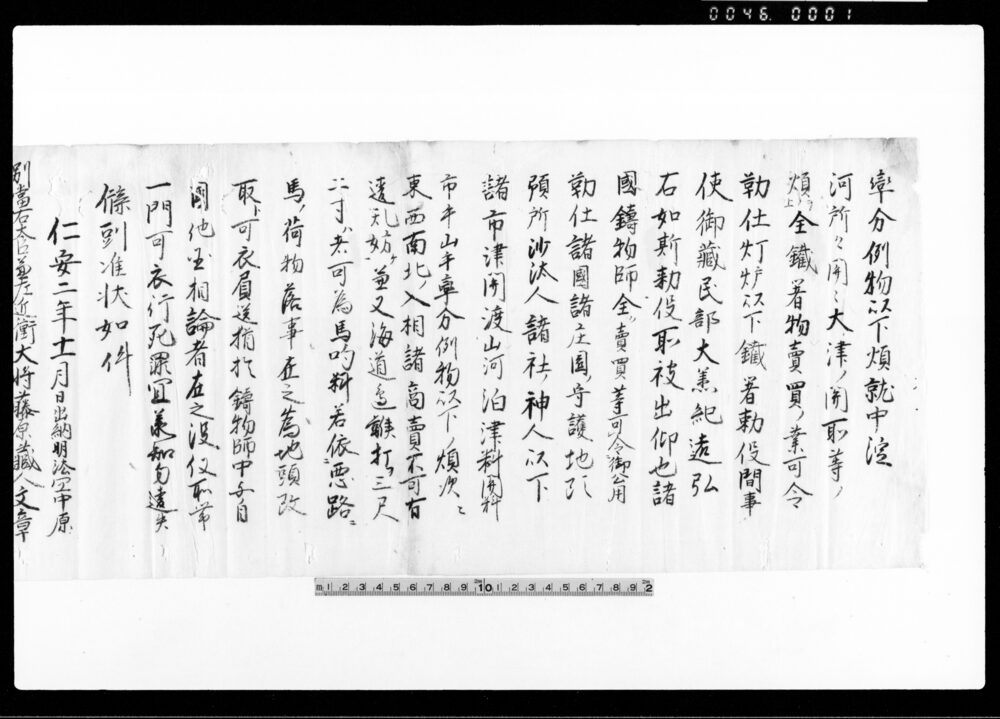 0046. 0001
率分例物以下煩就中淀
河所々関々大津ノ関取等ノ
煩上全鐵署物賣買ノ業可令
勤仕灯炉以下鐵署勅役間事
使御藏民部大丞紀遠弘
右如斯勅役取被出仰也諸
國鑄物師全賣買等可令御公用
勤仕諸國諸庄園ノ守護地頭
預所沙汰人諸社ノ神人以下
諸市津関渡山河泊津料関料
市手山手率分例物以下ノ煩次々
東西南北ノ入相諸商賣不可有
違乱妨ノ兼又海道邊鞍打三尺
二寸ハ者可為馬吻料若依悪路
馬ノ荷物落事在之為地頭改
取ハ可衣肩送指於鑄物師中
國他国相論者在之没収取帯
一門可衣行死罪冝承知勿違失
條到准状如件
仁安二年十一月日出納明法中原
別當右大臣兼左近衛大将藤原藏人文章
m 1 2 3 4 5 6 7 8 9 10 1 2 3 4 5 6 7 8 9 2